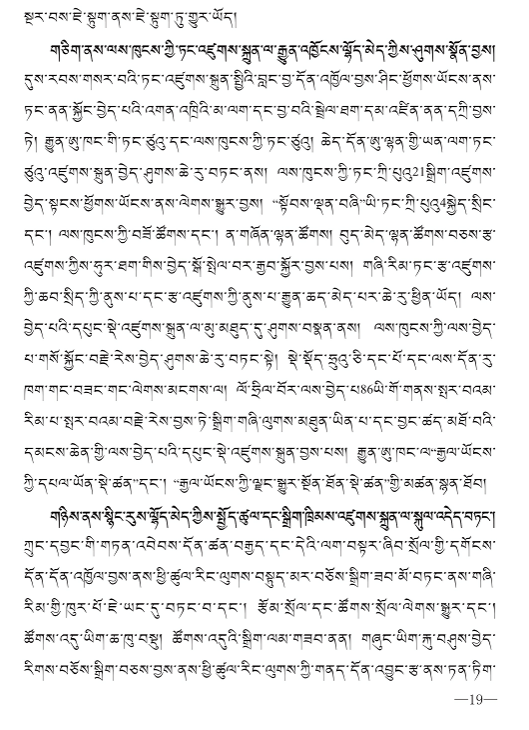 སྔར་བས་ཇེ་སྡུག་ནས་ཇེ་སྡུག་ཏུ་གྱུར་ཡོད།
གཅིག་ནས་ལས་ཁུངས་ཀྱི་ཏང་འཛུགས་སྐྲུན་ལ་རྒྱུན་འཁྱོངས་ལྷོད་མེད་ཀྱིས་ཤུགས་སྣོན་བྱས།
དུས་རབས་གསར་བའི་ཏང་འཛུགས་སྐྲུན་སྤྱིའི་བླང་བྱ་དོན་འཁྱོལ་བྱས་ཤིང་ཕྱོགས་ཡོངས་ནས་
ཏང་ནན་སྐྱོང་བྱེད་པའི་འགན་འཁྲིའི་མ་ལག་དང་བྱ་བའི་སྦྲེལ་ཐག་དམ་འཛིན་ནན་དཀྲི་བྱས་
ཏེ། རྒྱུན་ཨུ་ཁང་གི་ཏང་ཙུའུ་དང་ལས་ཁུངས་ཀྱི་ཏང་ཙུའུ། ཆེད་དོན་ཨུ་ལྷན་གྱི་ཡན་ལག་ཏང་
ཙུའུ་འཛུགས་སྐྲུན་བྱེད་ཤུགས་ཆེ་རུ་བཏང་ནས། ལས་ཁུངས་ཀྱི་ཏང་ཀྲི་པུའུ21སྒྲིག་འཛུགས་
བྱེད་སྟངས་ཕྱོགས་ཡོངས་ནས་ལེགས་སྒྱུར་བྱས། “སྟོབས་ལྡན་བཞི”ཡི་ཏང་ཀྲི་པུའུ4སྐྱེད་སྲིང་
དང་། ལས་ཁུངས་ཀྱི་བཟོ་ཚོགས་དང་། ན་གཞོན་ལྷན་ཚོགས། བུད་མེད་ལྷན་ཚོགས་བཅས་རྩ་
འཛུགས་ཀྱིས་ཧུར་ཐག་གིས་བྱེད་སྒོ་སྤེལ་བར་རྒྱབ་སྐྱོར་བྱས་པས། གཞི་རིམ་ཏང་རྩ་འཛུགས་
ཀྱི་ཆབ་སྲིད་ཀྱི་ནུས་པ་དང་རྩ་འཛུགས་ཀྱི་ནུས་པ་རྒྱུན་ཆད་མེད་པར་ཆེ་རུ་ཕྱིན་ཡོད། ལས་
བྱེད་པའི་དཔུང་སྡེ་འཛུགས་སྐྲུན་ལ་མུ་མཐུད་དུ་ཤུགས་བསྣན་ནས། ལས་ཁུངས་ཀྱི་ལས་བྱེད་
པ་གསོ་སྐྱོང་བརྗེ་རེས་བྱེད་ཤུགས་ཆེ་རུ་བཏང་སྟེ། སྡེ་སྟོད་ཧྲུའུ་ཅི་དང་པོ་དང་ལས་དོན་རུ་
ཁག་གང་བཟང་གང་ལེགས་མངགས་ལ། ལོ་ཧྲིལ་པོར་ལས་བྱེད་པ86ཡི་གོ་གནས་སྤར་བའམ་
རིམ་པ་སྤར་བའམ་བརྗེ་རེས་བྱས་ཏེ་སྒྲིག་གཞི་ལུགས་མཐུན་ཡིན་པ་དང་བྱང་ཚད་མཐོ་བའི་
དམངས་ཆེན་གྱི་ལས་བྱེད་པའི་དཔུང་སྡེ་འཛུགས་སྐྲུན་བྱས་པས། རྒྱུན་ཨུ་ཁང་ལ“རྒྱལ་ཡོངས་
ཀྱི་དཔལ་ཡོན་སྡེ་ཚན”དང་། “རྒྱལ་ཡོངས་ཀྱི་ལྗང་སྒྱུར་སྔོན་ཐོན་སྡེ་ཚན”གྱི་མཚན་སྙན་ཐོབ།
གཉིས་ནས་སྙིང་རུས་ལྷོད་མེད་ཀྱིས་སྤྱོད་ཚུལ་དང་སྒྲིག་ཁྲིམས་འཛུགས་སྐྲུན་ལ་སྐུལ་འདེད་བཏང།
ཀྲུང་དབྱང་གི་གཏན་འབེབས་དོན་ཚན་བརྒྱད་དང་དེའི་ལག་བསྟར་ཞིབ་སྲོལ་གྱི་དགོངས་
དོན་དོན་འཁྱོལ་བྱས་ནས་ཕྱི་ཚུལ་རིང་ལུགས་བསྡུད་མར་བཅོས་སྒྲིག་ཟབ་མོ་བཏང་ནས་གཞི་
རིམ་གྱི་ཁུར་པོ་ཇེ་ཡང་དུ་བཏང་བ་དང་། རྩོམ་སྲོལ་དང་ཚོགས་སྲོལ་ལེགས་སྒྱུར་དང་།
ཚོགས་འདུ་ཡིག་ཆ་ཁུ་བསྡུ། ཚོགས་འདུའི་སྒྲིག་ལམ་གཟབ་ནན། གཞུང་ཡིག་རྐུ་བཤུས་བྱེད་
རིགས་བཅོས་སྒྲིག་བཅས་བྱས་ནས་ཕྱི་ཚུལ་རིང་ལུགས་ཀྱི་གནད་དོན་འབྱུང་རྩ་ནས་ཏན་ཏིག་
—19—